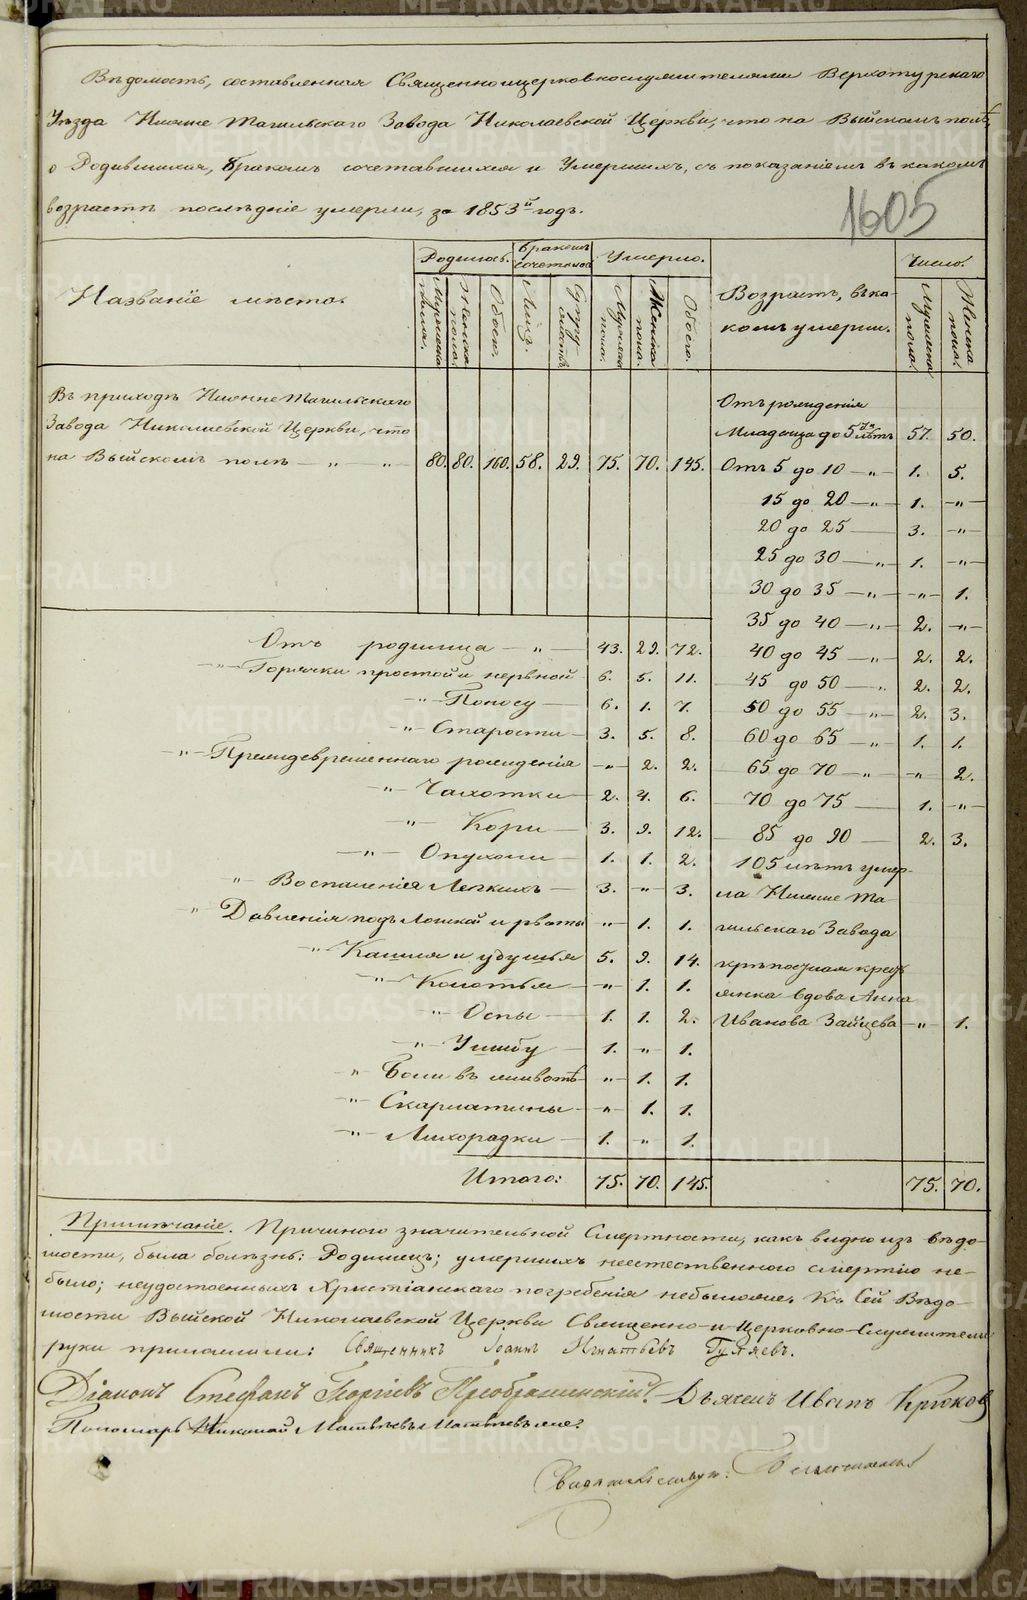 Вѣдомость, составленная Священноцерковнослужителями Верхотурскаго
Уѣзда Нижне Тагильскаго Завода Николаевской Церкви, что на Выйскомъ полѣ,
о Родившихся, бракомъ сочетавшихся и Умершихъ, съ показаніемъ въ какомъ
возрастѣ послѣдніе умерли, за 1853й годъ.
1605
Названіе мѣста.
Родилось.
Бракомъ сочеталось
Умерло.
Возрастъ, въ ка-
комъ умерли.
Число.
Мужеска пола.
Женска пола.
Обоего.
Лицъ.
Супружествъ
Мужеска пола.
Женска пола.
Обоего.
Мужеска пола.
Женска пола.
Въ приходѣ Нижне Тагильскаго
Завода Николаевской Церкви, что
на Выйскомъ полѣ — „ — „ — 80. 80. 160. 58. 29. 75. 70. 145.
Отъ рожденія
Младенца до 5ти лѣтъ 57. 50.
Отъ 5 до 10 — „ — 1. 5.
15 до 20 — „ — 1. — „ —
20 до 25 — 3. — „ —
25 до 30 — „ — 1. — „ —
30 до 35 — „ — „ — 1.
35 до 40 — „ — 2. — „ —
40 до 45 — „ — 2. 2.
45 до 50 — „ 2. 2.
50 до 55 — „ — 2. 3.
60 до 65 — „ 1. 1.
65 до 70 — „ — „ — 2.
70 до 75 — 1. — „ —
85 до 90 — 2. 3.
105 лѣтъ умер-
ла Нижне Та-
гильскаго Завода
крѣпостная кресть
янка вдова Анна
Иванова Зайцева — „ — 1.
Отъ родимца — „ — 43. 29. 72.
— „ — Горячки простой и нервной 6. 5. 11.
— „ — Поносу — 6. 1. 7.
— „ — Старости — 3. 5. 8.
— „ — Преждевременнаго рожденія — „ — 2. 2.
— „ — Чахотки — 2. 4. 6.
— „ — Кори — 3. 9. 12.
— „ — Опухоли — 1. 1. 2.
„ — Воспаленія Легкихъ — 3. — „ — 3.
„ — Давленія подъ Ложкой и рвоты — „ — 1. 1.
— „ — Кашля и удушья 5. 9. 14.
— „ — Колотья — „ — 1. 1.
— „ — Оспы — 1. 1. 2.
— „ — Ушибу — 1. „ 1.
— „ — Боли въ животѣ — „ — 1. 1.
— „ — Скарлатины — „ — 1. 1.
— „ — Лихорадки — 1. — „ 1.
Итого: 75. 70. 145. 75. 70.
Примѣчаніе. Причиною значительной Смертности, какъ видно изъ вѣдо-
мости, была болѣзнь: Родимецъ; умершихъ неестественною смертію не-
было; неудостоенныхъ Христіанскаго погребенія небыложе. Къ Сей Вѣдо-
мости Выйской Николаевской Церкви Священно-и-Церковно-Служители
руки приложили: Священникъ Іоаннъ Игнатьевъ Гуляевъ.
Діаконъ Стефанъ Георгіевъ Преображенскій. Дьячекъ Иванъ Крюковъ
Пономарь Николай Матвѣевъ
METRIKI.GASO-URAL.RU